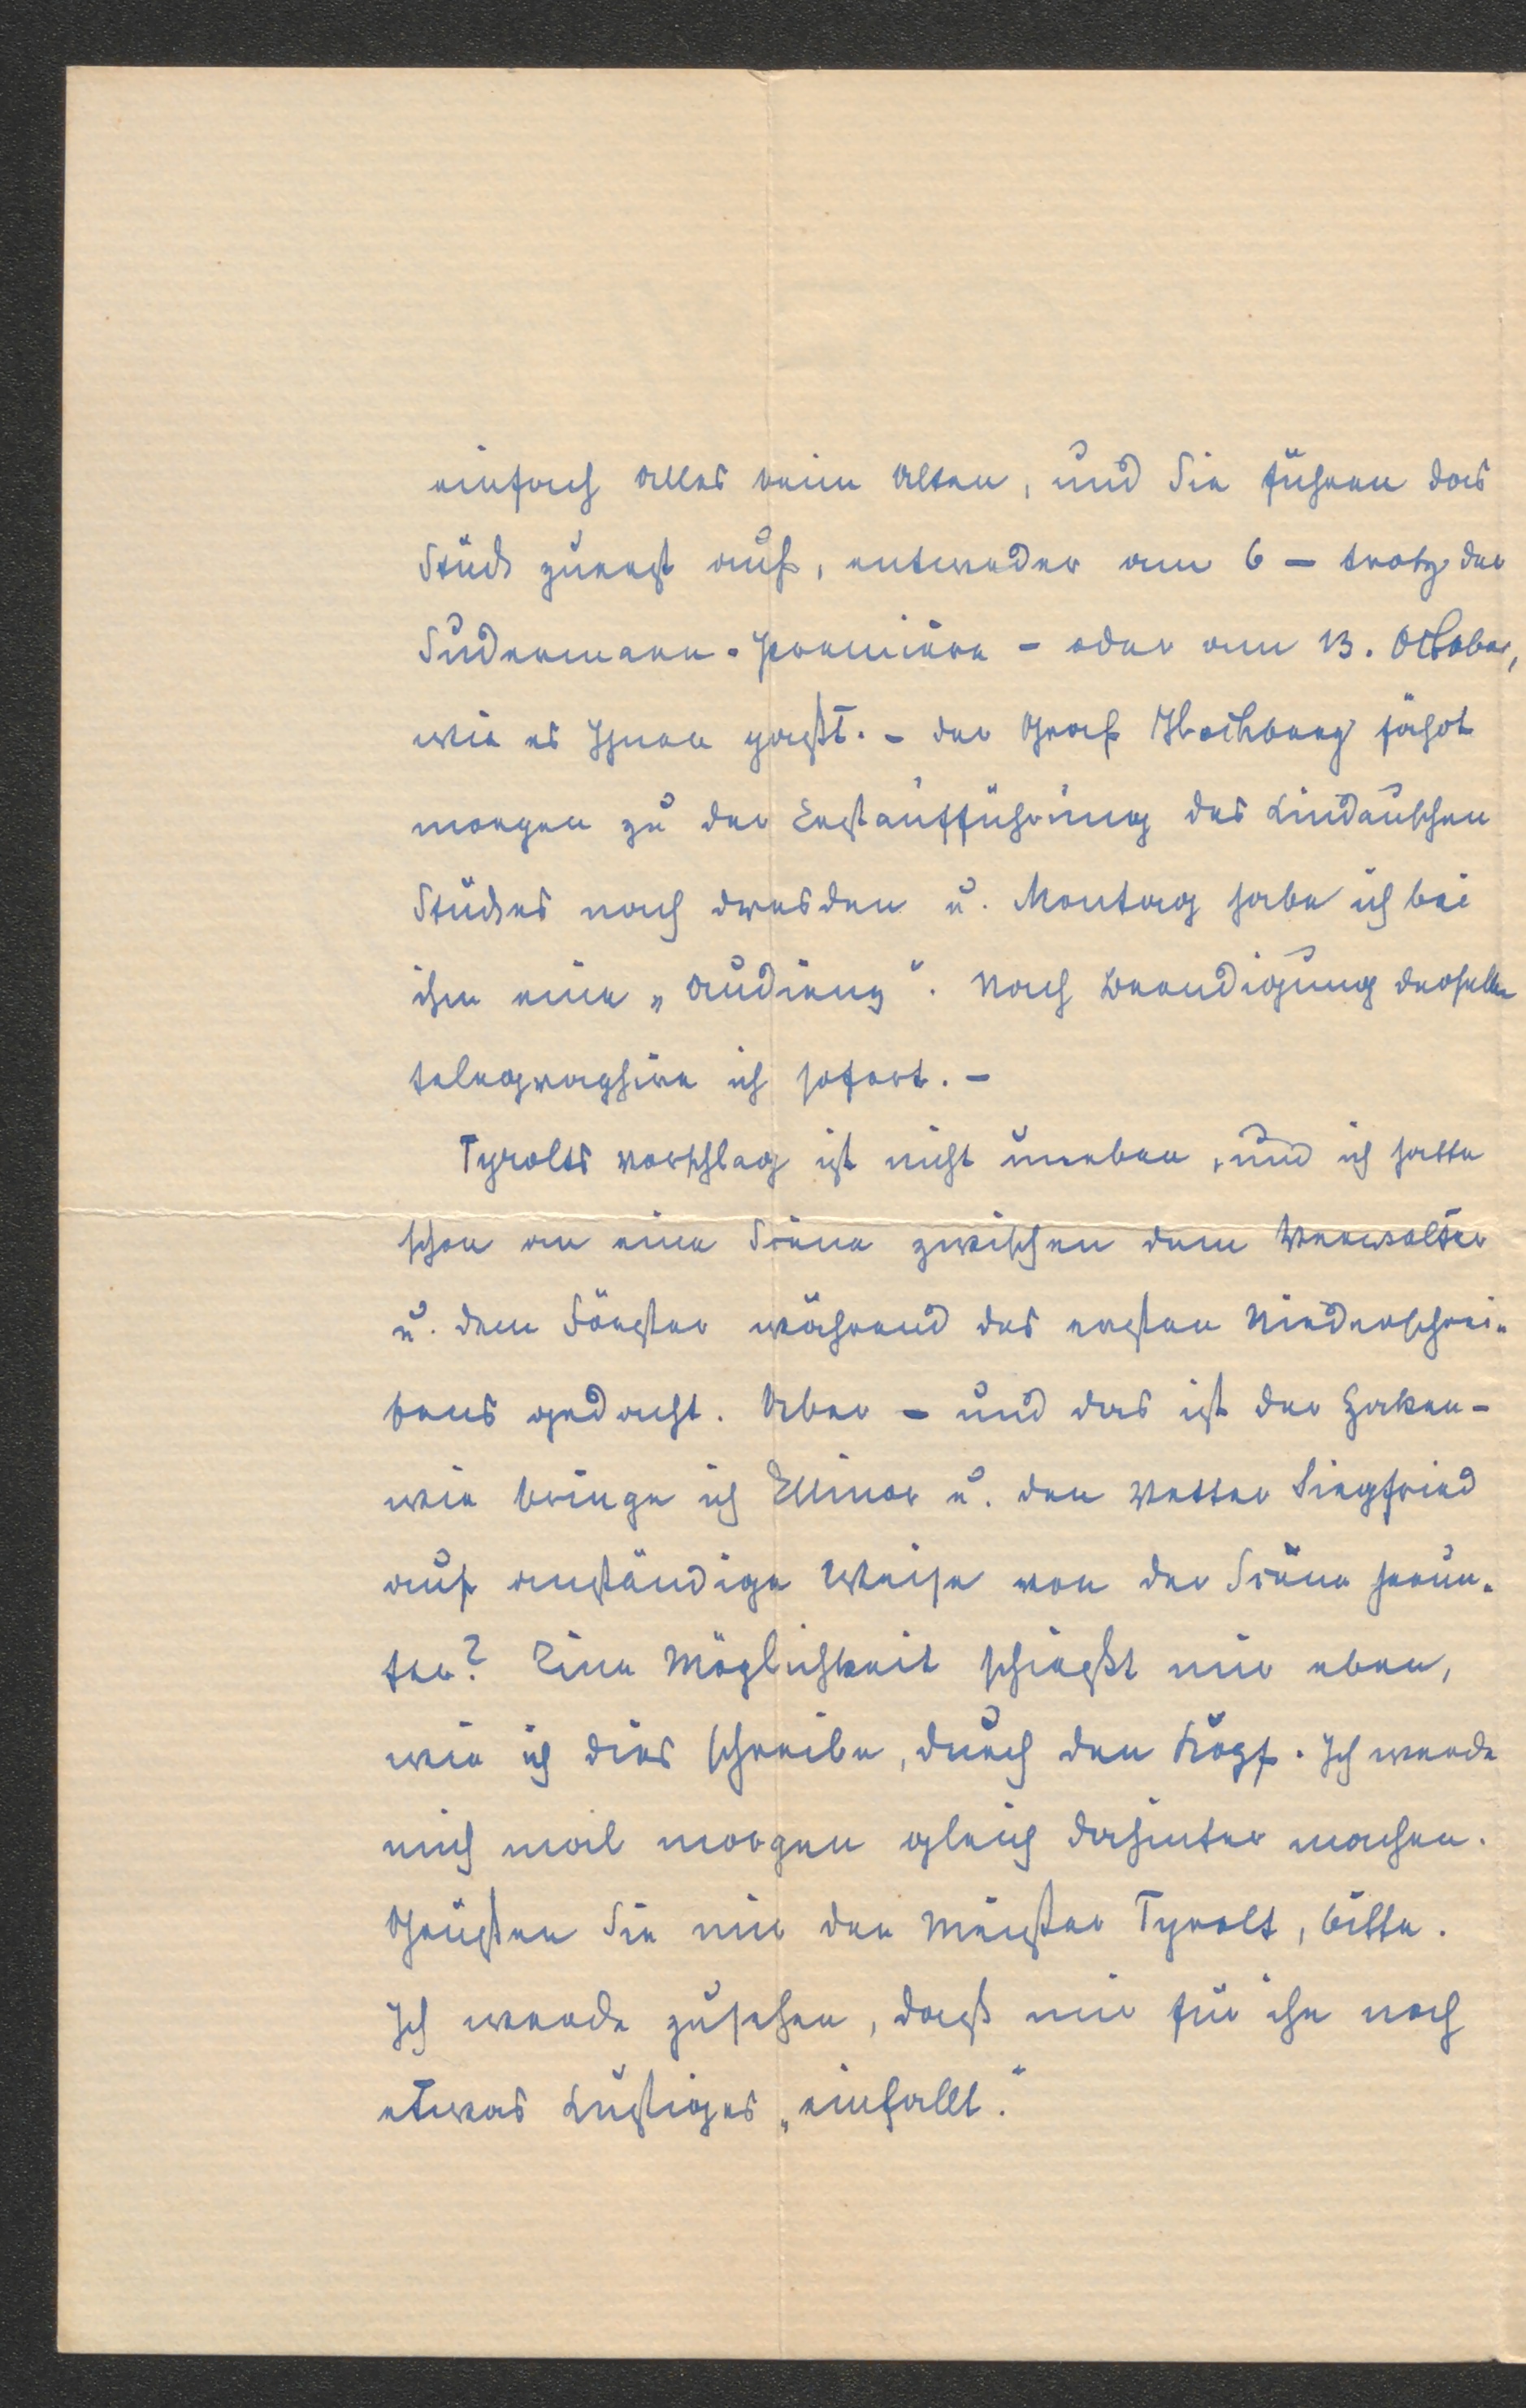 einfach alles beim Alten, und Sie führen das
Stück zuerst auf, entweder am 6 – trotz der
Sudermann-Première – oder am 13. October,
wie es Ihnen paßt. – Der Graf Hochberg fährt
morgen zu der Erstaufführung des Lindauschen
Stückes nach Dresden u. Montag habe ich bei
ihm eine „Audienz“. Nach Beendigung derselben
telegraphire ich sofort. –
Tyrolts Vorschlag ist nicht uneben, und ich hatte
schon an eine Scene zwischen dem Verwalter
u. dem Förster während des ersten Niederschrei-
bens gedacht. Aber – und das ist der Haken –
wie bringe ich Ellinor u. den Vetter Siegfried
auf anständige Weise von der Scene herun-
ter? Eine Möglichkeit schießt mir eben,
wie ich dies schreibe, durch den Kopf. Ich werde
mich mal morgen gleich dahinter machen.
Grüßen Sie mir den Meister Tyrolt, bitte.
Ich werde zusehen, daß mir für ihn noch
etwas Lustiges „einfallt.“